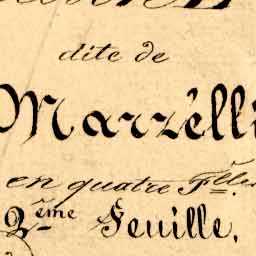 dite de
Marzélli
en quatre F.lles
2.ème Feuille.